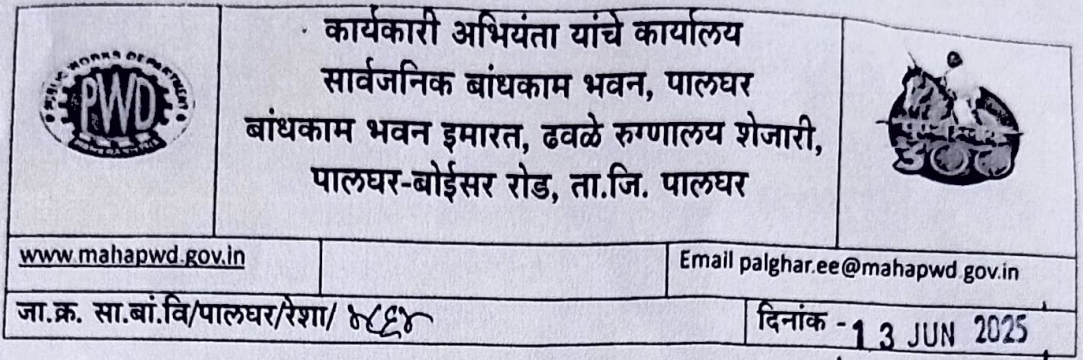 कार्यकारी अभियंता यांचे कार्यालय
सार्वजनिक बांधकाम भवन, पालघर
बांधकाम भवन इमारत, ढवळे रुग्णालय शेजारी,
पालघर-बोईसर रोड, ता.जि. पालघर
PUBLIC WORKS DEPARTMENT
PWD
www.mahapwd.gov.in
Email palghar.ee@mahapwd.gov.in
जा.क्र. सा.बां.वि/पालघर/रेशा/ ४८६४
दिनांक - 13 JUN 2025